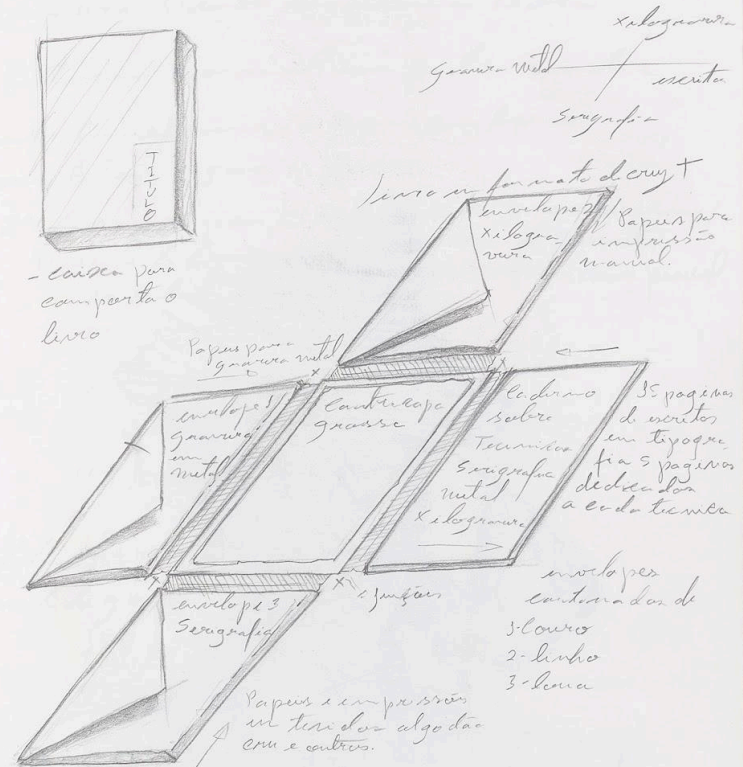 xilogravura
gravura metal
escrita
serigrafia
TITULO
livro em formato de cruz
- caixa para
comporta o
livro
envelope 2
xilogra-
vura
Papeis para
impressão
manual.
Papeis para
gravura metal
envelope 1
gravura
em
metal
contracapa
grossa
caderno
sobre
Tecnicas
Serigrafia
metal
xilogravura
15 paginas
de escritos
em tipogra
fia 5 paginas
dedicadas
a cada tecnica
envelope 3
Serigrafia
x junções
envelopes
costurados de
1-couro
2-linho
3-lona
Papeis e impressões
em tecidos algodão
cru e outros.